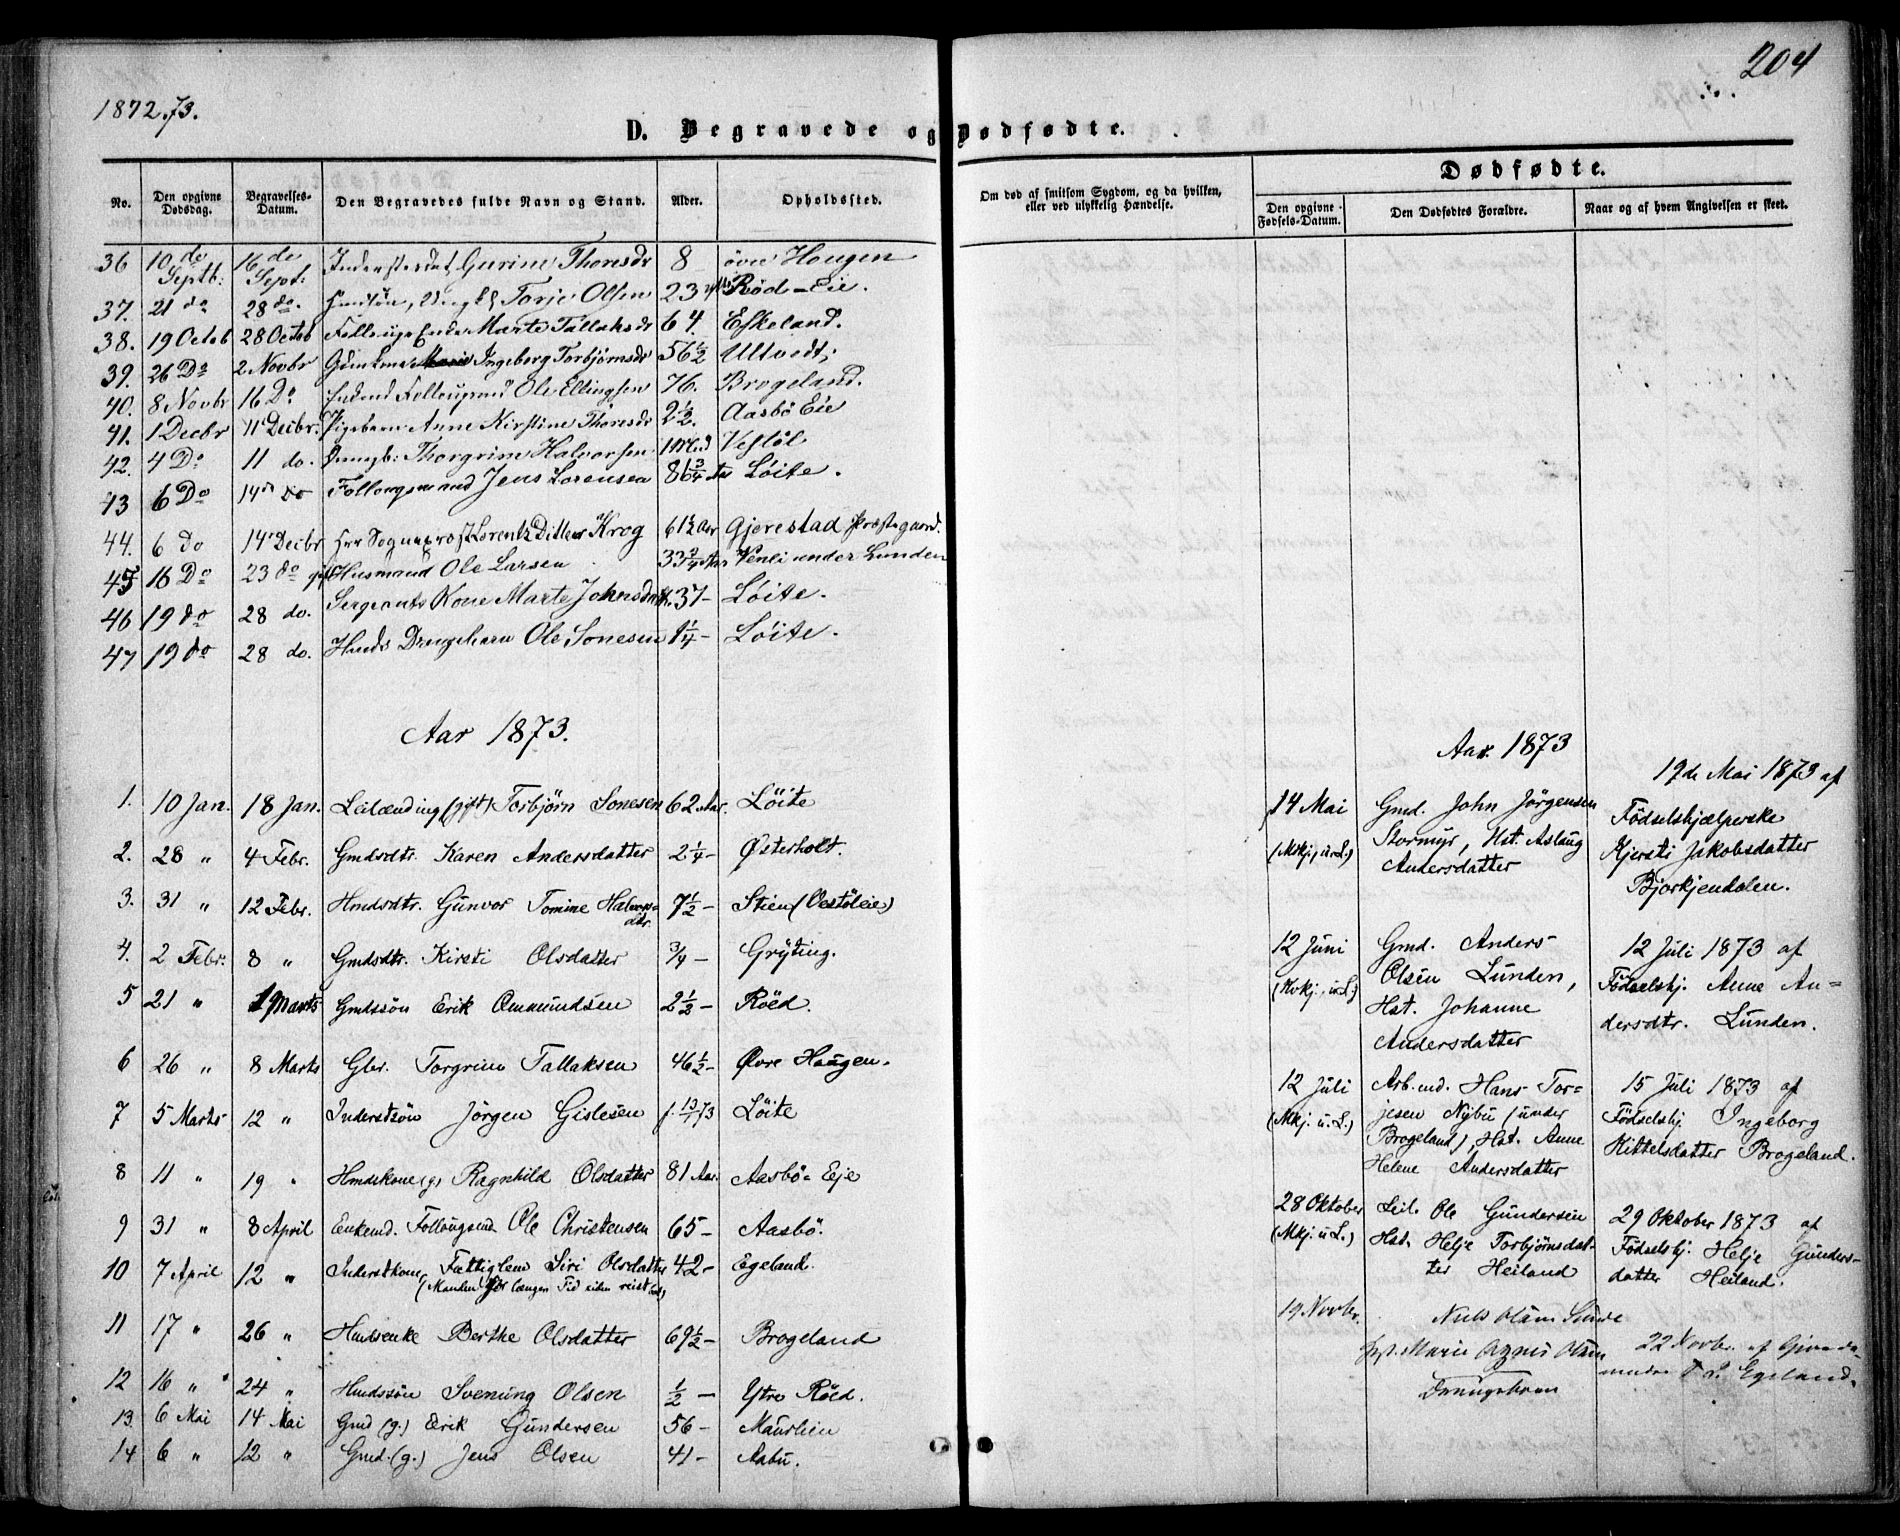 204
1872.73.
D. Begravede og Dødfødte.
No. Den opgivne Dødsdag. Begravelses-Datum. Den Begravedes fulde Navn og Stand. Alder. Opholdssted. Om død af smitsom Sygdom, og da hvilken, eller ved ulykkelig Hændelse. Dødfødte.
Den opgivne Fødsels-Datum. Den Dødfødtes Forældre. Naar og af hvem Angivelsen er skeet.
36 10de Septb: 16de Sept: Gurine Thoresdr 8 övre Hougen
37. 21 do 28 do. Torje Olsen 23 Röd-Eie.
38. 19 Octob 28 Octob Marte Tallaksdr 64. Eskeland.
39. 26 Do 2 Novbr Ingeborg Torbjørnsdr 56 1/2 Ultvedt.
40. 8 Novbr 16 Do Ole Ellingsen 76. Brogeland.
41. 1 Decbr 11 Decbr. Pigebarn Anne Kirstine Thoresdr 2 1/2. Aasbö Eie
42. 4 Do 11 do. Thorgrim Halvorsen 1 Md Vestöl
43 6 Do 14de do Follougsmand Jens Lorensen 86 3/4 Aar Löite.
44. 6 do 14 Decbr Herr Sogneprost Lorentz Ditlev Krog 61 1/2 Aar Gjerestad Præstegaard.
45 16 Do 23 do gift Husmand Ole Larsen 33 3/4 Aar Venli under Lunden
46 19 do 28 do. Sergeants Kone Marte Johnsdatter 37- Löite.
47 19 do 28 do. Hmds Drengebarn Ole Sonesen 1 1/4- Löite.
Aar 1873.
1. 10 Jan. 18 Jan. Leilænding (gift) Torbjörn Sonesen 62 Aar. Löite
2. 28 " 4 Febr. Gmdsdtr. Karen Andersdatter 2 1/4- Østerholt.
3. 31 " 12 Febr. Hmdsdtr. Gunvor Tomine Halvors=dtr. 7 1/2- Stien (Vestöleie)
4. 2 Febr. 8 " Gmdsdtr. Kirsti Olsdatter 3/4- Gryting.
5 21 " 1 Marts Gmdssön Erik Ommundsen 2 1/2- Röed.
6 26 " 8 Marts Gbr. Torgrim Tallaksen 46 1/2- Øvre Haugen.
7 5 Marts 12 " Inderstsön Jörgen Gislesen f. 13/1 73 Löite
8 11 " 19 " Hmdskone (g) Ragnhild Olsdatter 81 Aar. Aasbö-Eje
9 31 " 8 April Enkemd. Follougsmd Ole Christensen 65- Aasbö.
10 7 April 12 " Inderstkone, Fattiglem Siri Olsdatter 42- Egeland.
(Manden for længere Tid siden reist bort)
11 17 " 26 " Hmdsenke Berthe Olsdatter 69 1/2- Brogeland
12 16 " 24 " Hmdssön Svenung Olsen 1/2 - Ytre Röed.
13. 6 Mai 14 Mai Gmd (g.) Erik Gundersen 56- Maurlien
14 6 " 12 " Gmd. (g.) Jens Olsen 41- Aabu.
Aar. 1873
14 Mai (Mkj. u.L.) Gmd. John Jörgensen Stormyr, Hst. Aslaug Andersdatter 19de Mai 1873 af Födselshjælperske Kjersti Jakobsdatter Bjorkjendalen.
12 Juni (Kvkj. u.L.) Gmd. Anders Olsen Lunden, Hst. Johanne Andersdatter 12 Juli 1873 af Födselshj. Anne An=dersdtr. Lunden.
12 Juli (Mkj. u.L.) Arb.md. Hans Tor=jesen Nybu (under Brogeland), Hst. Anne Helene Andersdatter 15 Juli 1873 af Födselshj. Ingeborg Kittelsdatter Brogeland.
28 Oktober (Mkj. u.L.) Leil. Ole Gundersen Hst. Helje Torbjörnsdat-ter Heiland 29 Oktober 1873 af Födselshj. Helje Gunders-datter Heiland.
19 Novbr. Niels Olsen Sunde Hst. Marie Agnis Olsen Drengebarn 22 Novbr. af Egeland.